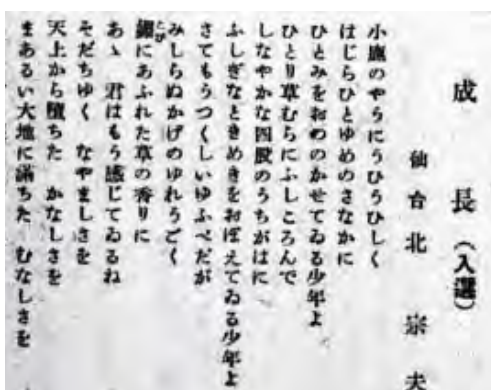 成長（入選）
仙台 北宗夫
小鹿のやうにうひうひしく
はじらひとゆめのさなかに
ひとみをおののかせてゐる少年よ
ひとり草むらにふしころんで
しなやかな四股のうちがはに
ふしぎなときめきをおぼえてゐる少年よ
さてもうつくしいゆふべだが
みしらぬかげのゆれうごく
にあふれた草の香りに
あゝ 君はもう感じてゐるね
そだちゆく なやましさを
天上から堕ちた かなしさを
まあるい大地に満ちた むなしさを